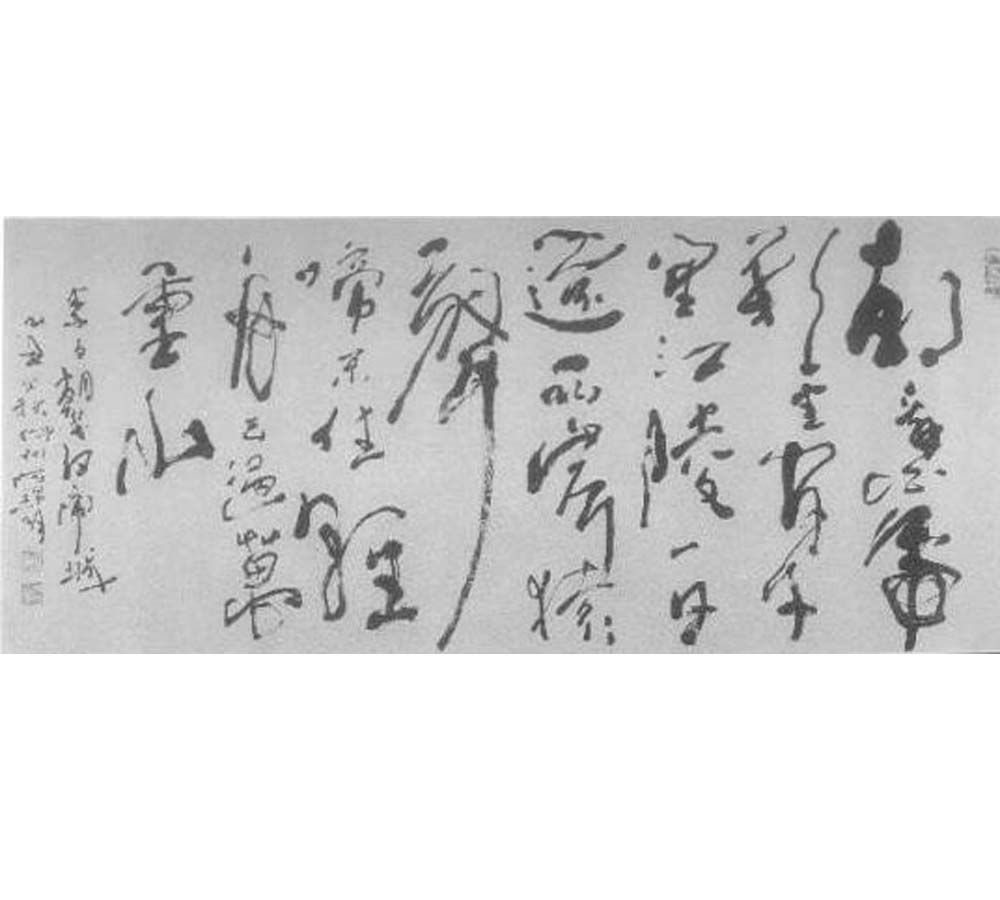 朝辭白帝
彩雲間千
里江陵一日
還兩岸猿
聲
啼不住輕
舟已過萬
重山
李白朝發白帝城